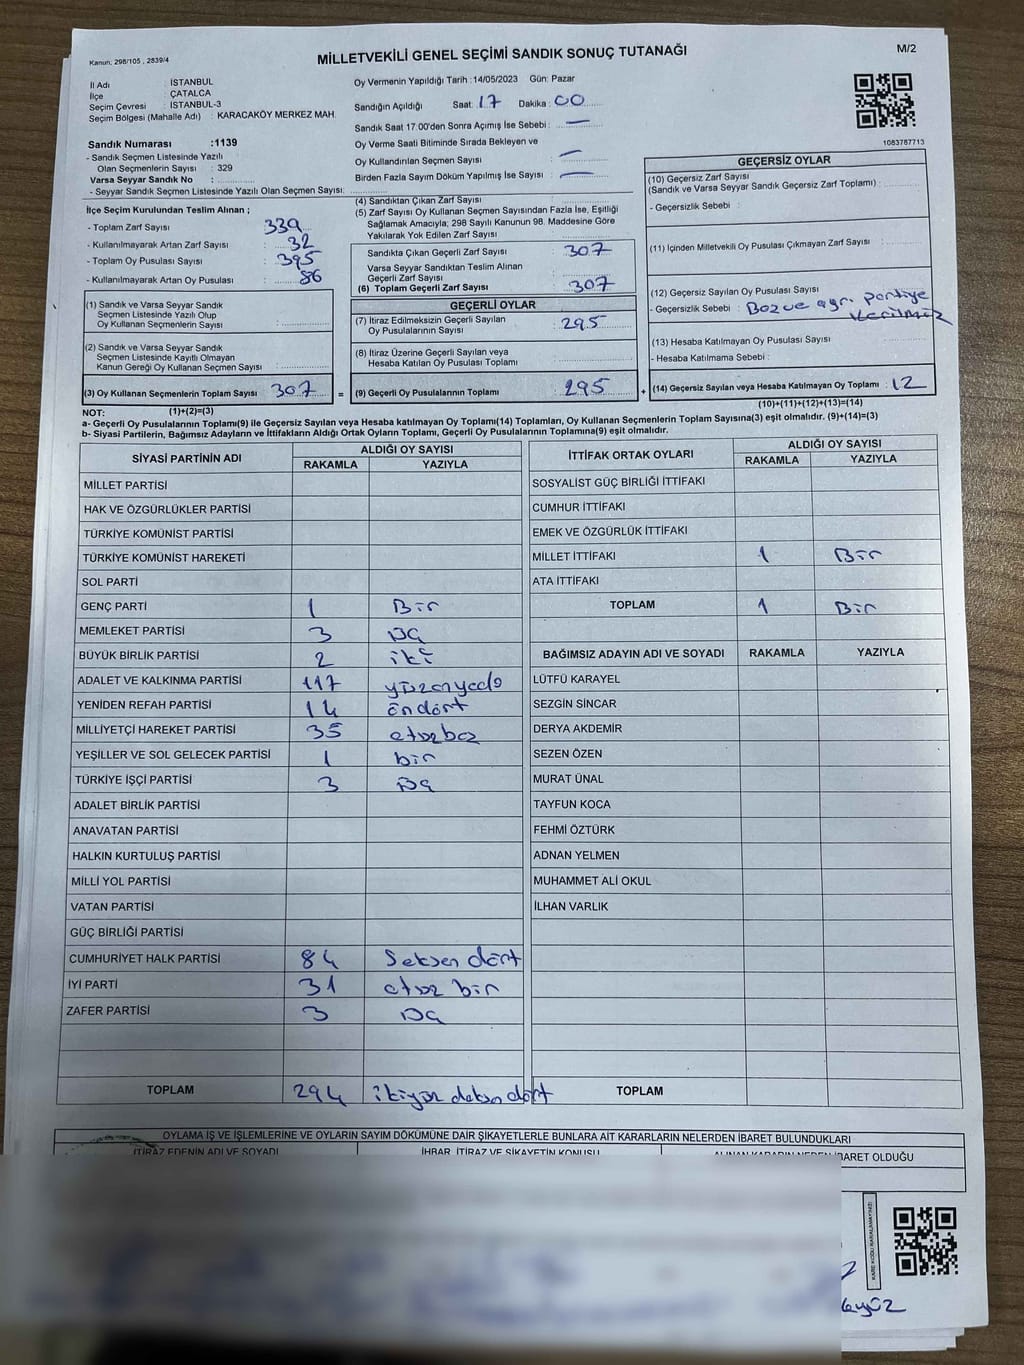 Kanun: 298/105 , 2839/4
MİLLETVEKİLİ GENEL SEÇİMİ SANDIK SONUÇ TUTANAĞI
M/2
İl Adı : İSTANBUL
İlçe : ÇATALCA
Seçim Çevresi : İSTANBUL-3
Seçim Bölgesi (Mahalle Adı) : KARACAKÖY MERKEZ MAH.
Sandık Numarası :1139
- Sandık Seçmen Listesinde Yazılı
Olan Seçmenlerin Sayısı : 329
Varsa Seyyar Sandık No :
- Seyyar Sandık Seçmen Listesinde Yazılı Olan Seçmen Sayısı:
Oy Vermenin Yapıldığı Tarih :14/05/2023 Gün: Pazar
Sandığın Açıldığı Saat: 17 Dakika: 00
Sandık Saat 17:00'den Sonra Açımış İse Sebebi : —
Oy Verme Saati Bitiminde Sırada Bekleyen ve
Oy Kullandırılan Seçmen Sayısı : —
Birden Fazla Sayım Döküm Yapılmış İse Sayısı : —
1083787713
İlçe Seçim Kurulundan Teslim Alınan ;
- Toplam Zarf Sayısı : 339
- Kullanılmayarak Artan Zarf Sayısı : 32
- Toplam Oy Pusulası Sayısı : 395
- Kullanılmayarak Artan Oy Pusulası : 86
(1) Sandık ve Varsa Seyyar Sandık
Seçmen Listesinde Yazılı Olup
Oy Kullanan Seçmenlerin Sayısı :
(2) Sandık ve Varsa Seyyar Sandık
Seçmen Listesinde Kayıtlı Olmayan
Kanun Gereği Oy Kullanan Seçmen Sayısı:
(3) Oy Kullanan Seçmenlerin Toplam Sayısı : 307 =
(1)+(2)=(3)
(4) Sandıktan Çıkan Zarf Sayısı :
(5) Zarf Sayısı Oy Kullanan Seçmen Sayısından Fazla İse, Eşitliği
Sağlamak Amacıyla, 298 Sayılı Kanunun 98. Maddesine Göre
Yakılarak Yok Edilen Zarf Sayısı :
Sandıkta Çıkan Geçerli Zarf Sayısı : 307
Varsa Seyyar Sandıktan Teslim Alınan
Geçerli Zarf Sayısı :
(6) Toplam Geçerli Zarf Sayısı : 307
GEÇERLİ OYLAR
(7) İtiraz Edilmeksizin Geçerli Sayılan
Oy Pusulalarının Sayısı : 295
(8) İtiraz Üzerine Geçerli Sayılan veya
Hesaba Katılan Oy Pusulası Toplamı :
(9) Geçerli Oy Pusulalarının Toplamı : 295 +
GEÇERSİZ OYLAR
(10) Geçersiz Zarf Sayısı
(Sandık ve Varsa Seyyar Sandık Geçersiz Zarf Toplamı) :
- Geçersizlik Sebebi :
(11) İçinden Milletvekili Oy Pusulası Çıkmayan Zarf Sayısı :
(12) Geçersiz Sayılan Oy Pusulası Sayısı :
- Geçersizlik Sebebi : partiye
verilmiz
(13) Hesaba Katılmayan Oy Pusulası Sayısı :
- Hesaba Katılmama Sebebi :
(14) Geçersiz Sayılan veya Hesaba Katılmayan Oy Toplamı : 12
(10)+(11)+(12)+(13)=(14)
NOT:
a- Geçerli Oy Pusulalarının Toplamı(9) ile Geçersiz Sayılan veya Hesaba katılmayan Oy Toplamı(14) Toplamları, Oy Kullanan Seçmenlerin Toplam Sayısına(3) eşit olmalıdır. (9)+(14)=(3)
b- Siyasi Partilerin, Bağımsız Adayların ve İttifakların Aldığı Ortak Oyların Toplamı, Geçerli Oy Pusulalarının Toplamına(9) eşit olmalıdır.
SİYASİ PARTİNİN ADI ALDIĞI OY SAYISI
RAKAMLA YAZIYLA
MİLLET PARTİSİ
HAK VE ÖZGÜRLÜKLER PARTİSİ
TÜRKİYE KOMÜNİST PARTİSİ
TÜRKİYE KOMÜNİST HAREKETİ
SOL PARTİ
GENÇ PARTİ 1 Bir
MEMLEKET PARTİSİ 3 Üç
BÜYÜK BİRLİK PARTİSİ 2 iki
ADALET VE KALKINMA PARTİSİ 117 yüzonyedo
YENİDEN REFAH PARTİSİ 14 öndört
MİLLİYETÇİ HAREKET PARTİSİ 35 otuzbez
YEŞİLLER VE SOL GELECEK PARTİSİ 1 bir
TÜRKİYE İŞÇİ PARTİSİ 3 Üç
ADALET BİRLİK PARTİSİ
ANAVATAN PARTİSİ
HALKIN KURTULUŞ PARTİSİ
MİLLİ YOL PARTİSİ
VATAN PARTİSİ
GÜÇ BİRLİĞİ PARTİSİ
CUMHURİYET HALK PARTİSİ 84 Seksen dört
İYİ PARTİ 31 otuz bir
ZAFER PARTİSİ 3 Üç
TOPLAM 294 ikiyüz doksan dört
İTTİFAK ORTAK OYLARI ALDIĞI OY SAYISI
RAKAMLA YAZIYLA
SOSYALİST GÜÇ BİRLİĞİ İTTİFAKI
CUMHUR İTTİFAKI
EMEK VE ÖZGÜRLÜK İTTİFAKI
MİLLET İTTİFAKI 1 Bir
ATA İTTİFAKI
TOPLAM 1 Bir
BAĞIMSIZ ADAYIN ADI VE SOYADI RAKAMLA YAZIYLA
LÜTFÜ KARAYEL
SEZGİN SİNCAR
DERYA AKDEMİR
SEZEN ÖZEN
MURAT ÜNAL
TAYFUN KOCA
FEHMİ ÖZTÜRK
ADNAN YELMEN
MUHAMMET ALİ OKUL
İLHAN VARLIK
TOPLAM
OYLAMA İŞ VE İŞLEMLERİNE VE OYLARIN SAYIM DÖKÜMÜNE DAİR ŞİKAYETLERLE BUNLARA AİT KARARLARIN NELERDEN İBARET BULUNDUKLARI
İTİRAZ EDENİN ADI VE SOYADI İHBAR, İTİRAZ VE ŞİKAYETİN KONUSU ALINAN KARARIN NEDEN İBARET OLDUĞU
KARE KODU KARALAMAYINIZ!